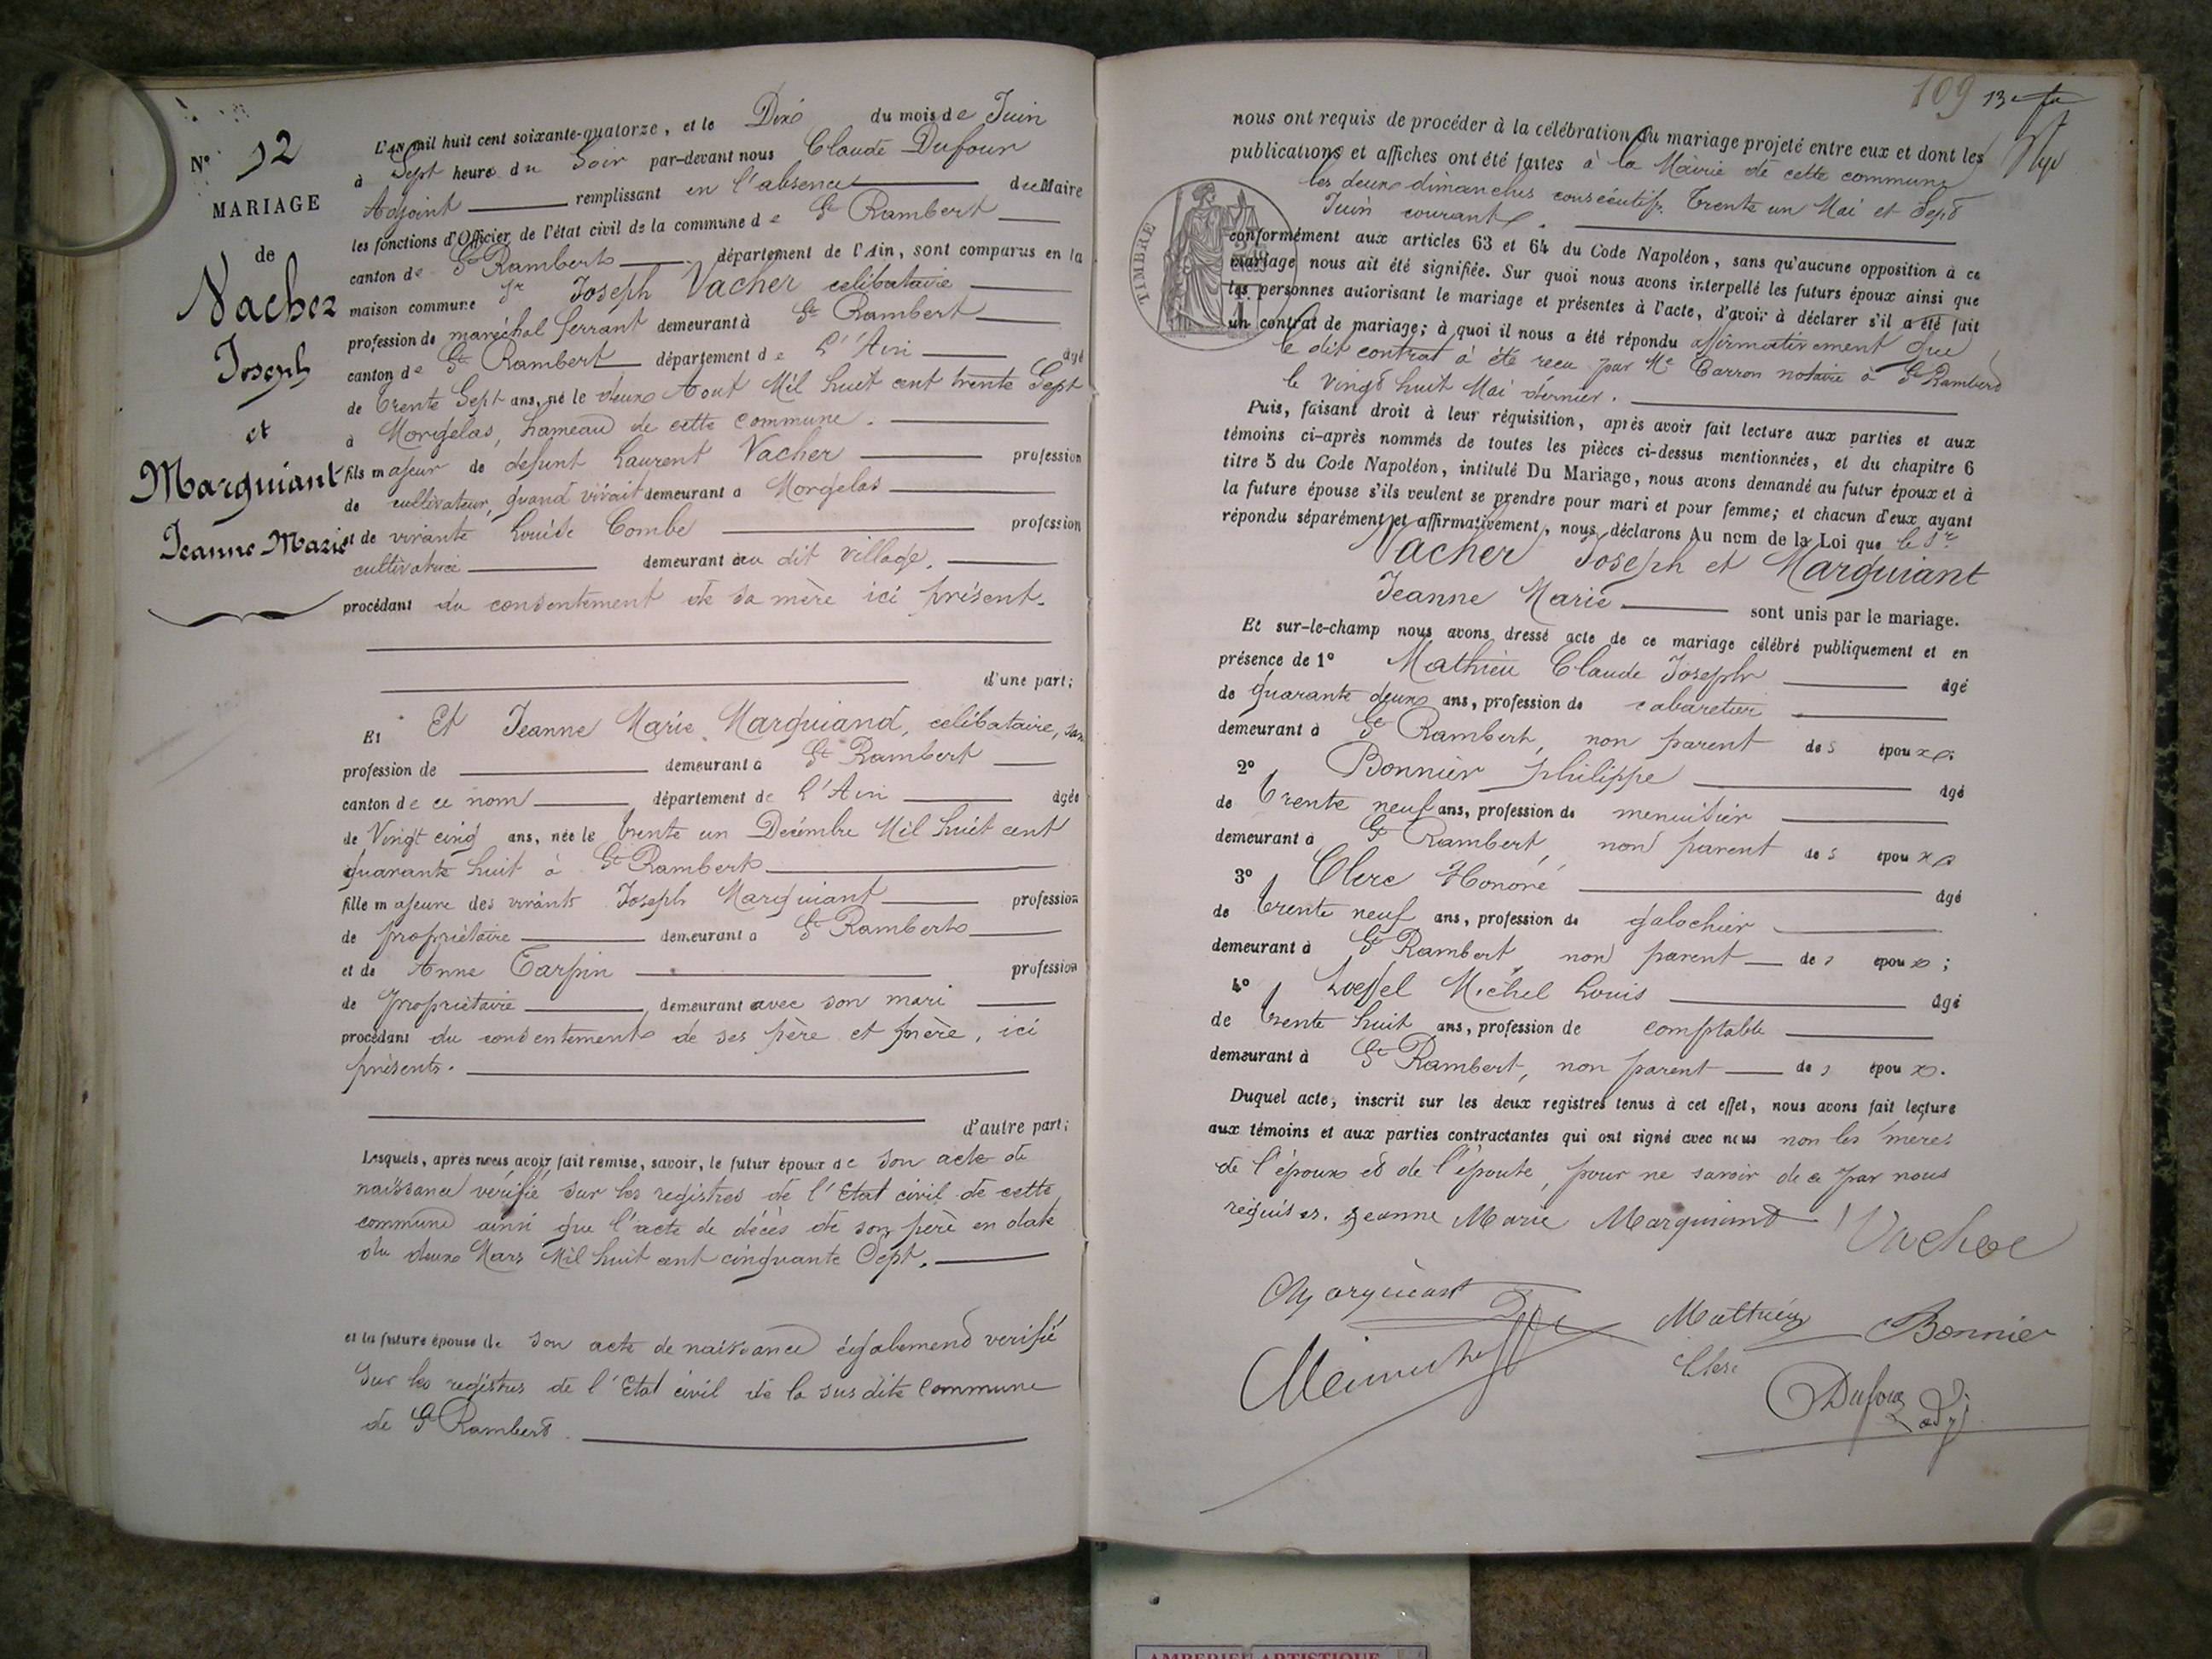 N° 12
MARIAGE
de
Vacher
Joseph
et
Marguiant
Jeanne Marie
L'an mil huit cent soixante-quatorze, et le Dix du mois de Juin
à Sept heure du Soir par-devant nous Claude Dufour
Adjoint remplissant en l'absence du Maire
les fonctions d'Officier de l'état civil de la commune de St Rambert
canton de St Rambert département de l'Ain, sont comparus en la
maison commune Sr Joseph Vacher celibataire
profession de maréchal ferrant demeurant à St Rambert
canton de St Rambert département de L'Ain âgé
de trente Sept ans, né le deux Aout Mil huit cent trente Sept
à Morgelas, hameau de cette commune.
fils majeur de defunt Laurent Vacher profession
de cultivateur, quand vivait demeurant à Morgelas
et de vivante Louise Combe profession
cultivatrice demeurant au dit village.
procédant du consentement de sa mère ici présent.
d'une part;
Et Et Jeanne Marie Marguiand, celibataire, san
profession de demeurant à St Rambert
canton de ce nom département de L'Ain âgée
de Vingt cinq ans, née le trente un Decémbre Mil huit cent
quarante huit à St Rambert
fille majeure des vivants Joseph Marguiant profession
de propriétaire demeurant à St Rambert
et de Anne Tarpin profession
de propriétaire demeurant avec son mari
procédant du consentement de ses père et mère, ici
présents.
d'autre part;
Lesquels, après nous avoir fait remise, savoir, le futur époux de Son acte de
naissance vérifié sur les registres de l'Etat civil de cette
commune ainsi que l'acte de décès de son père en date
du deux Mars Mil huit cent cinquante Sept.
et la future épouse de son acte de naissance également verifié
Sur les registres de l'Etat civil de la susdite commune
de St Rambert.
109 13e
nous ont requis de procéder à la célébration du mariage projeté entre eux et dont les
publications et affiches ont été faites à la Mairie de cette commune
les deux dimanches consécutifs. Trente un Mai et Sept
Juin courant.
TIMBRE
conformément aux articles 63 et 64 du Code Napoléon, sans qu'aucune opposition à ce
mariage nous ait été signifiée. Sur quoi nous avons interpellé les futurs époux ainsi que
les personnes autorisant le mariage et présentes à l'acte, d'avoir à déclarer s'il a été fait
un contrat de mariage; à quoi il nous a été répondu affirmativement que
le dit contrat à été recu par Me Carron notaire à St Rambert
le vingt huit Mai dérnier.
Puis, faisant droit à leur réquisition, après avoir fait lecture aux parties et aux
témoins ci-après nommés de toutes les pièces ci-dessus mentionnées, et du chapitre 6
titre 5 du Code Napoléon, intitulé Du Mariage, nous avons demandé au futur époux et à
la future épouse s'ils veulent se prendre pour mari et pour femme; et chacun d'eux ayant
répondu séparément et affirmativement, nous déclarons Au nom de la Loi que le Sr
Vacher Joseph et Marguiant
Jeanne Marie sont unis par le mariage.
Et sur-le-champ nous avons dressé acte de ce mariage célébré publiquement et en
présence de 1° Mathieu Claude Joseph âgé
de quarante deux ans, profession de cabaretier
demeurant à St Rambert, non parent des époux.
2° Bonnier Philippe âgé
de trente neuf ans, profession de menuisier
demeurant à St Rambert, non parent des époux
3° Clerc Honoré âgé
de trente neuf ans, profession de galochier
demeurant à St Rambert non parent des époux;
4° Loessel Michel Louis âgé
de trente huit ans, profession de comptable
demeurant à St Rambert, non parent des époux.
Duquel acte, inscrit sur les deux registres tenus à cet effet, nous avons fait lecture
aux témoins et aux parties contractantes qui ont signé avec nous non les meres
de l'époux et de l'épouse, pour ne savoir de ce par nous
requises. Jeanne Marie Marguiand Vacher
Marguiant
Mathieu Bonnier
Clerc
Dufour adj
AMBERIEU ARTISTIQUE